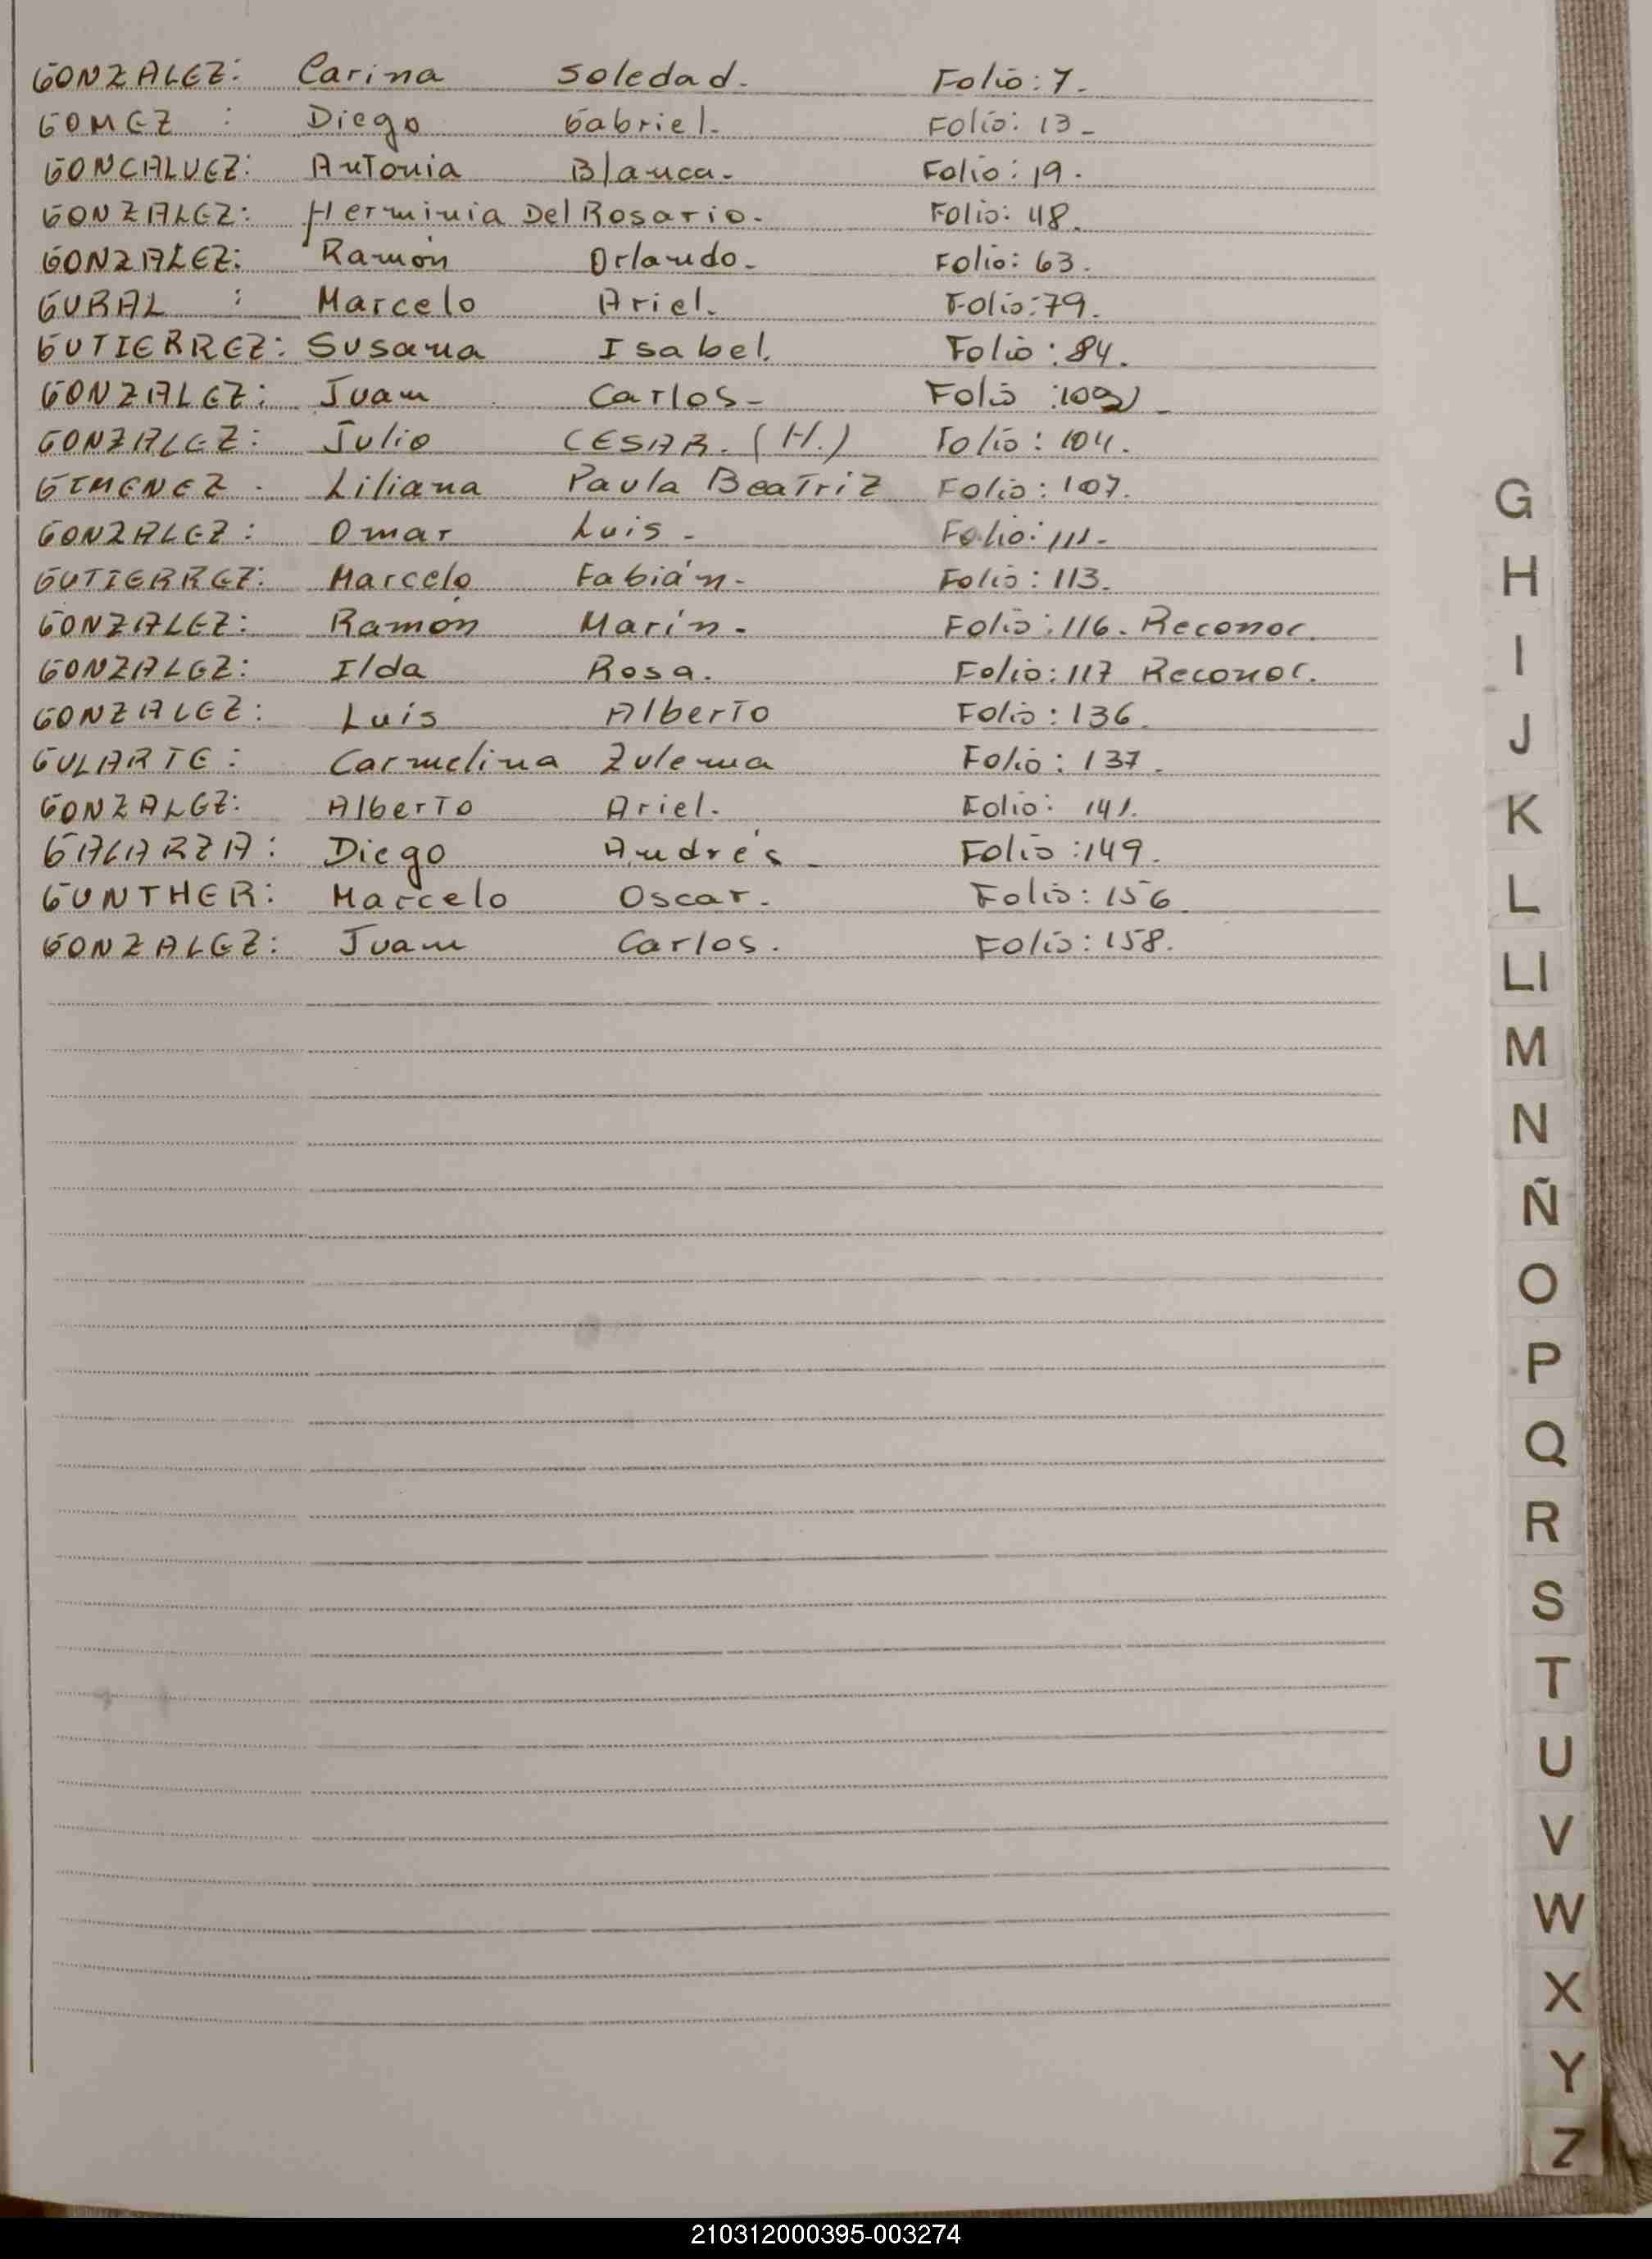 GONZALEZ: Carina Soledad. Folio: 7.
GOMEZ : Diego Gabriel. Folio: 13-
GONCALVEZ: Antonia Blanca. Folio: 19.
GONZALEZ: Herminia Del Rosario. Folio: 48.
GONZALEZ: Ramón Orlando. Folio: 63.
GURAL : Marcelo Ariel. Folio: 79.
GUTIERREZ: Susana Isabel. Folio: 84.
GONZALEZ: Juan Carlos- Folio
GONZALEZ: Julio CESAR. (H.) Folio: 104.
GIMENEZ. Liliana Paula Beatriz Folio: 107.
GONZALEZ: Omar Luis - Folio: 111-
GUTIERREZ: Marcelo Fabián- Folio: 113.
GONZALEZ: Ramón Marín- Folio: 116. Reconoc.
GONZALEZ: Ilda Rosa. Folio: 117 Reconoc.
GONZALEZ: Luis Alberto Folio: 136.
GULARTE: Carmelina Zulema Folio: 137.
GONZALEZ: Alberto Ariel. Folio: 141.
GALARZA: Diego Andrés- Folio: 149.
GUNTHER: Marcelo Oscar. Folio: 156.
GONZALEZ: Juan Carlos. Folio: 158.
G
H
I
J
K
L
Ll
M
N
Ñ
O
P
Q
R
S
T
U
V
W
X
Y
Z
210312000395-003274